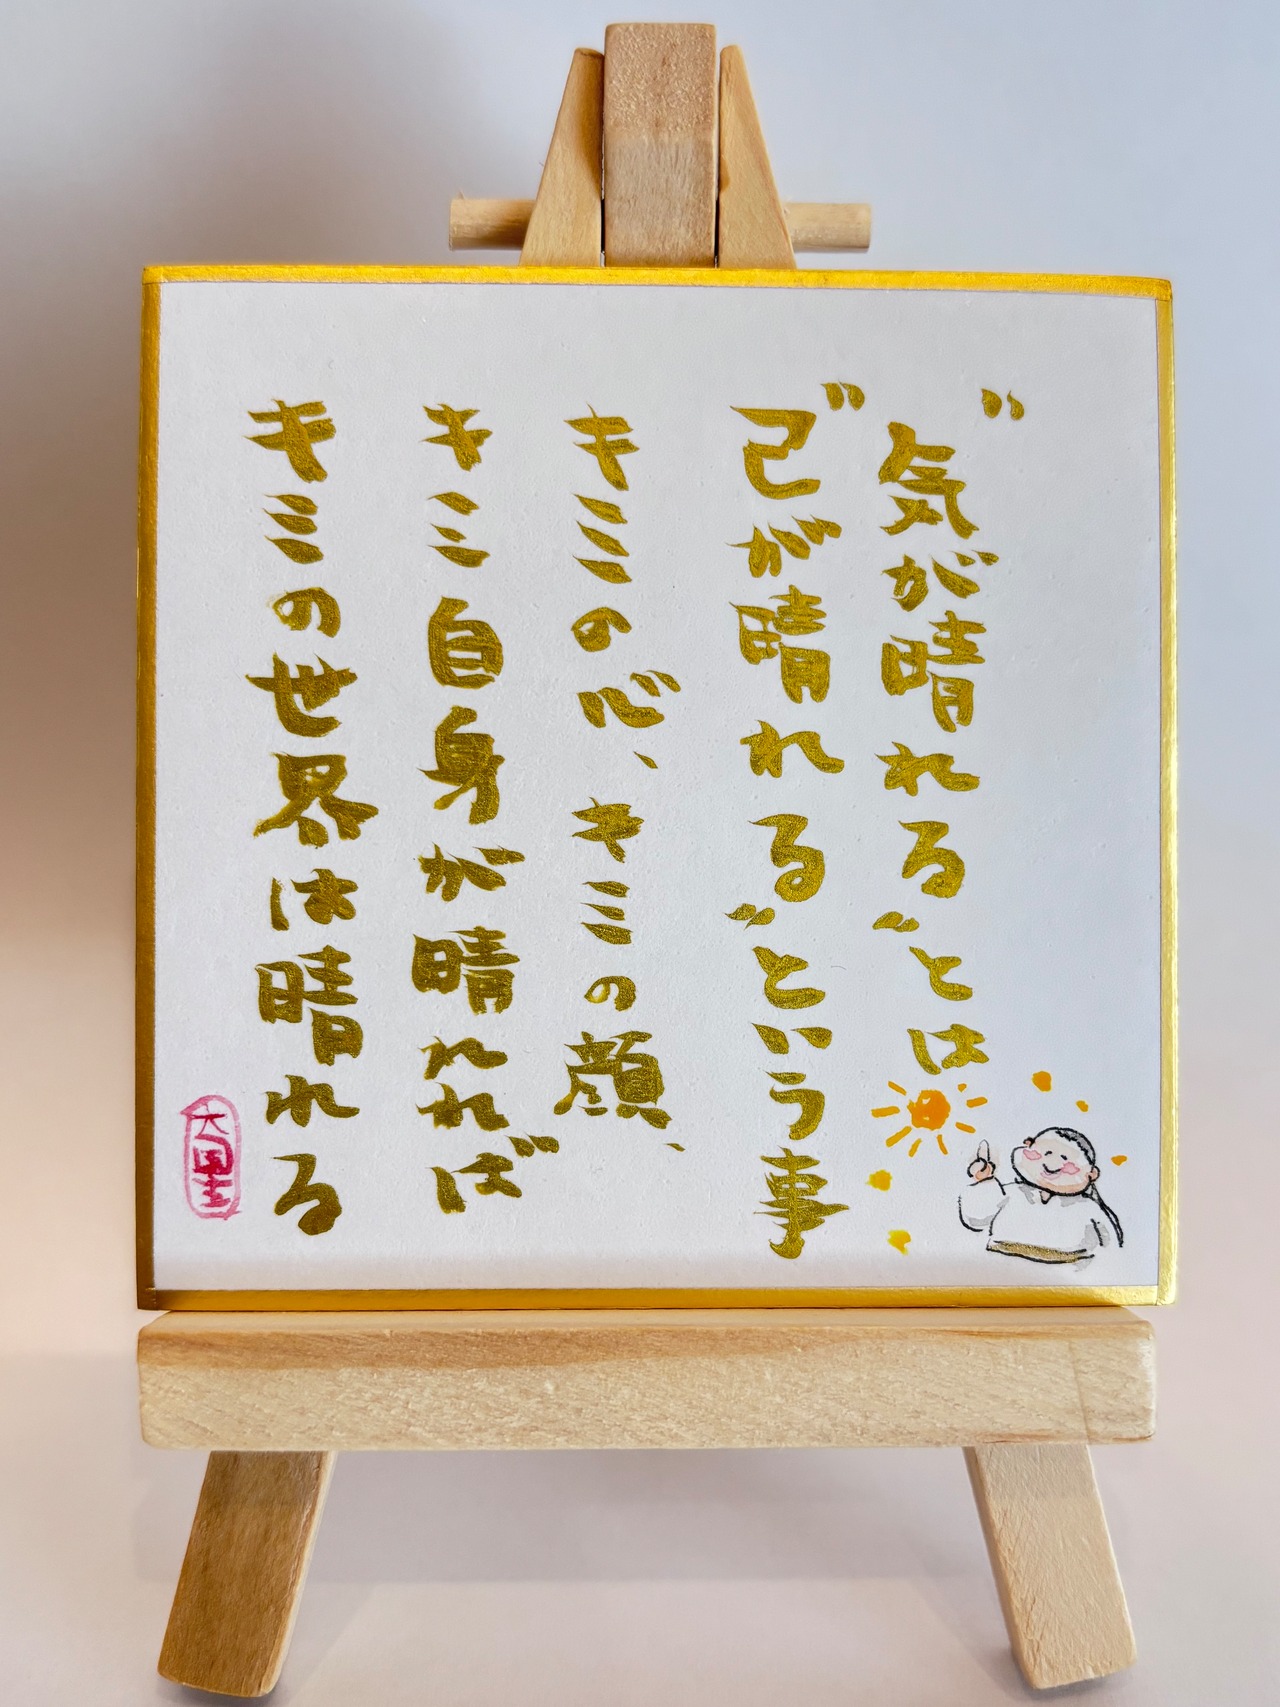 〝気が晴れる〟とは
〝己が晴れる〟という事
キミの心、キミの顔、
キミ自身が晴れれば
キミの世界は晴れる